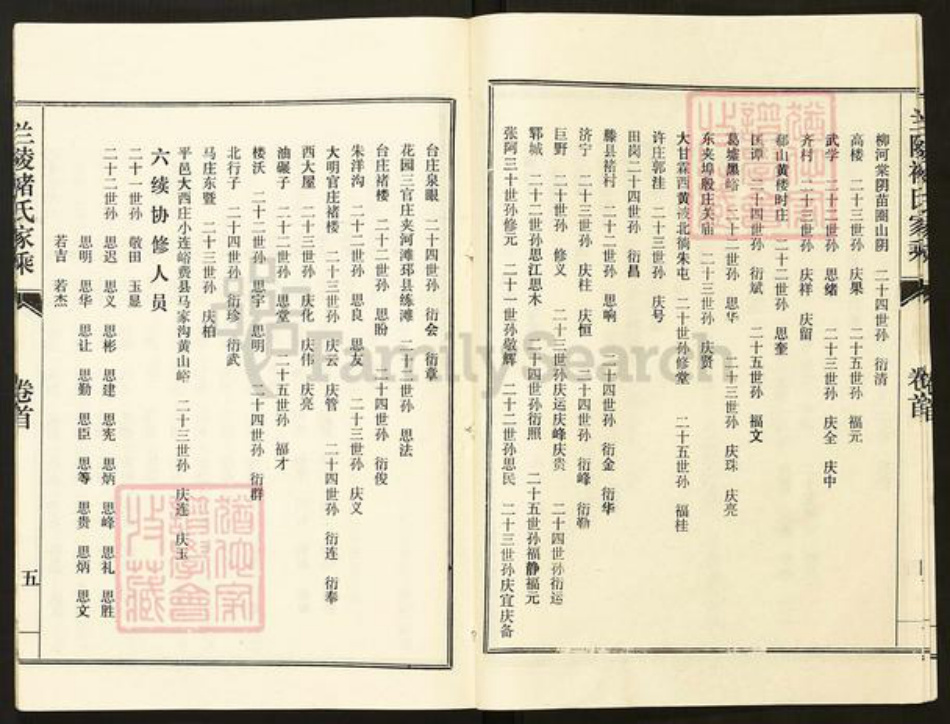 柳河棠阴苗圈山阴 二十四世孙 衍清
高楼 二十三世孙 庆果 二十五世孙 福元
武学 二十二世孙 思绪 二十三世孙 庆全 庆中
齐村 二十三世孙 庆祥 庆留
郗山黄楼时庄 二十二世孙 思奎
匡谭 二十四世孙 衍斌 二十五世孙 福文
葛墟黑峪 二十二世孙 思华 二十三世孙 庆珠 庆亮
东夹埠殷庄关庙 二十三世孙 庆贤
大甘霖西黄波北徜朱屯 二十世孙修堂 二十五世孙 福桂
许庄郭洼 二十三世孙 庆号
田岗二十四世孙 衍昌
滕县褚村 二十二世孙 思响 二十四世孙 衍金 衍华
济宁 二十三世孙 庆柱 庆恒 二十四世孙 衍峰 衍勤
巨野 二十世孙 修义 二十三世孙庆运庆峰庆贵 二十四世孙衍运
郓城 二十二世孙思江思木 二十四世孙衍照 二十五世孙福静福元
张阿三十世孙修元 二十一世孙敬解 二十二世孙思民 二十三世孙庆宜庆备
台庄泉眼 二十四世孙 衍会 衍章
花园三官庄夹河滩邳县练滩 二十世孙 思法
台庄褚楼 二十二世孙 思盼 二十四世孙 衍俊
朱洋沟 二十二世孙 思良 思友 二十三世孙 庆义
大明官庄褚楼 二十三世孙 庆云 庆管 二十四世孙 衍连 衍奉
西大屋 二十三世孙 庆化 庆伟 庆亮
油碾子 二十二世孙 思堂 二十五世孙 福才
楼沃 二十二世孙 思宇 思明 二十四世孙 衍群
北行子 二十四世孙 衍珍 衍武
马庄东暨 二十三世孙 庆柏
平邑大西庄小连峪费县马家沟黄山峪 二十三世孙 庆连 庆玉
六续协修人员
二十一世孙 敬田 玉显
二十二世孙 思迟 思义 思彬 思建 思宪 思炳 思峰 思礼 思胜
思明 思华 思让 思勤 思臣 思等 思贵 思炳 思文
若吉 若杰
兰陵褚氏家乘
卷首
五
兰陵褚氏家乘
卷首
FamilySearch